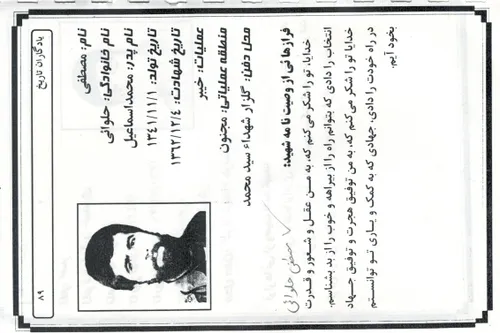 یادگاران تاریخ
نام: مصطفی
نام خانوادگی: حلوائی
نام پدر: محمداسماعیل
تاریخ تولد: ۱۳۴۱/۱۱/۱
تاریخ شهادت: ۱۳۶۲/۱۲/۴
عملیات: خیبر
منطقه عملیاتی: مجنون
محل دفن: گلزار شهداء سید محمد
فرازهائی از وصیت نامه شهید:
خدایا، تو را شکر می‌کنم که، به من عقل و شعور و قدرت
انتخاب را دادی که بتوانم راه را از بیراهه و خوب را از بد بشناسم.
خدایا تو را شکر می‌کنم که، به من توفیق هجرت و توفیق جهاد
در راه خودت را دادی، جهادی که به کمک و یاری تو توانستم
بخود آیم.
مصطفی حلوائی
۸۹